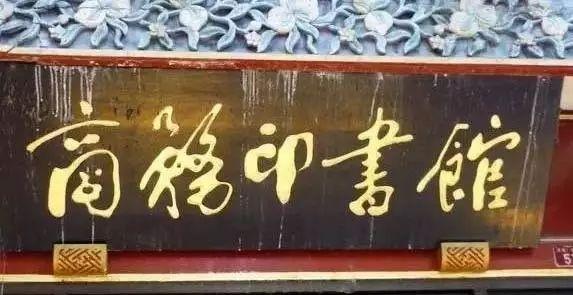 商務印書館